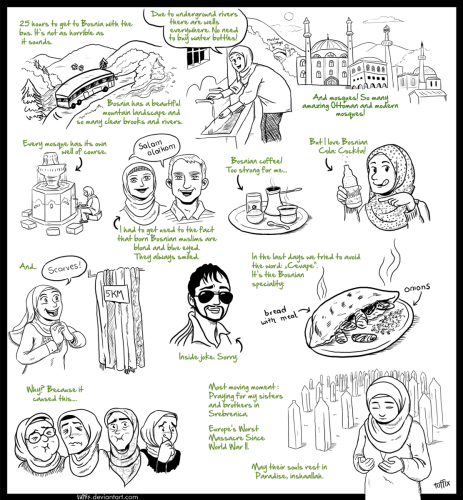 25 hours to get to Bosnia with the
bus. It's not as horrible as
it sounds.
Due to underground rivers
there are wells
everywhere. No need
to buy water bottles!
Bosnia has a beautiful
mountain landscape and
so many clear brooks and rivers.
And mosques! So many
amazing Ottoman and modern
mosques!
Every mosque has its own
well of course.
Salam
aleykum
I had to get used to the fact
that born Bosnian muslims are
blond and blue eyed.
They always smiled.
Bosnian coffee!
Too strong for me...
But I love Bosnian
Cola: Cockta!
And...
Scarves!
5KM
Inside joke. Sorry.
In the last days we tried to avoid
the word: „Cevape".
It's the Bosnian
speciality:
bread
with meat
onions
Why? Because it
caused this...
Most moving moment :
Praying for my sisters
and brothers in
Srebrenica.
Europe's Worst
Massacre Since
World War II.
May their souls rest in
Paradise, inshaallah.
tuffix
tuffix.deviantart.com